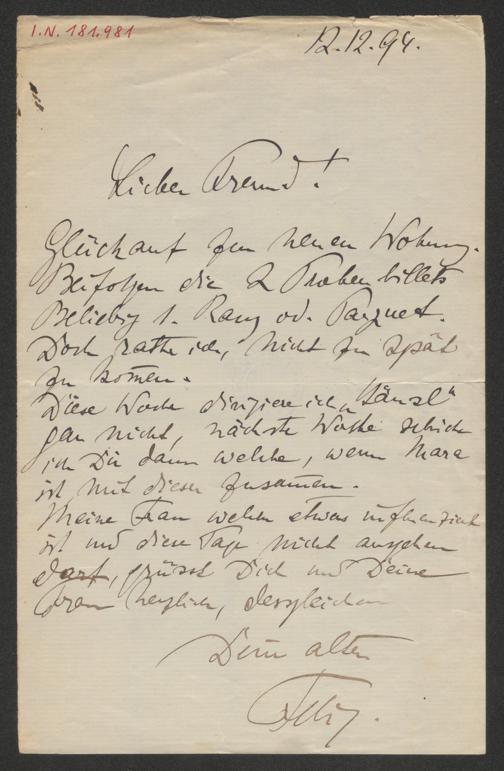 I.N. 181.981
12.12.94.
Lieber Freund!
Glückauf zur neuen Wohnung.
Beifolgen die 2 Probenbillets
Beliebig 1. Rang od. Parquet.
Doch rathe ich, nicht zu spät
zu kommen.
Diese Woche dirigiere ich „Hänsel"
gar nicht, nächste Woche schicke
ich Dir dann welche, wenn Mara
ist mit dieser zusammen.
Meine Frau welche etwas influenzirt
ist und diese Tage nicht ausgehen
darf, grüsst Dich und Deine
herzlich, desgleichen
Dein alter
Felix.